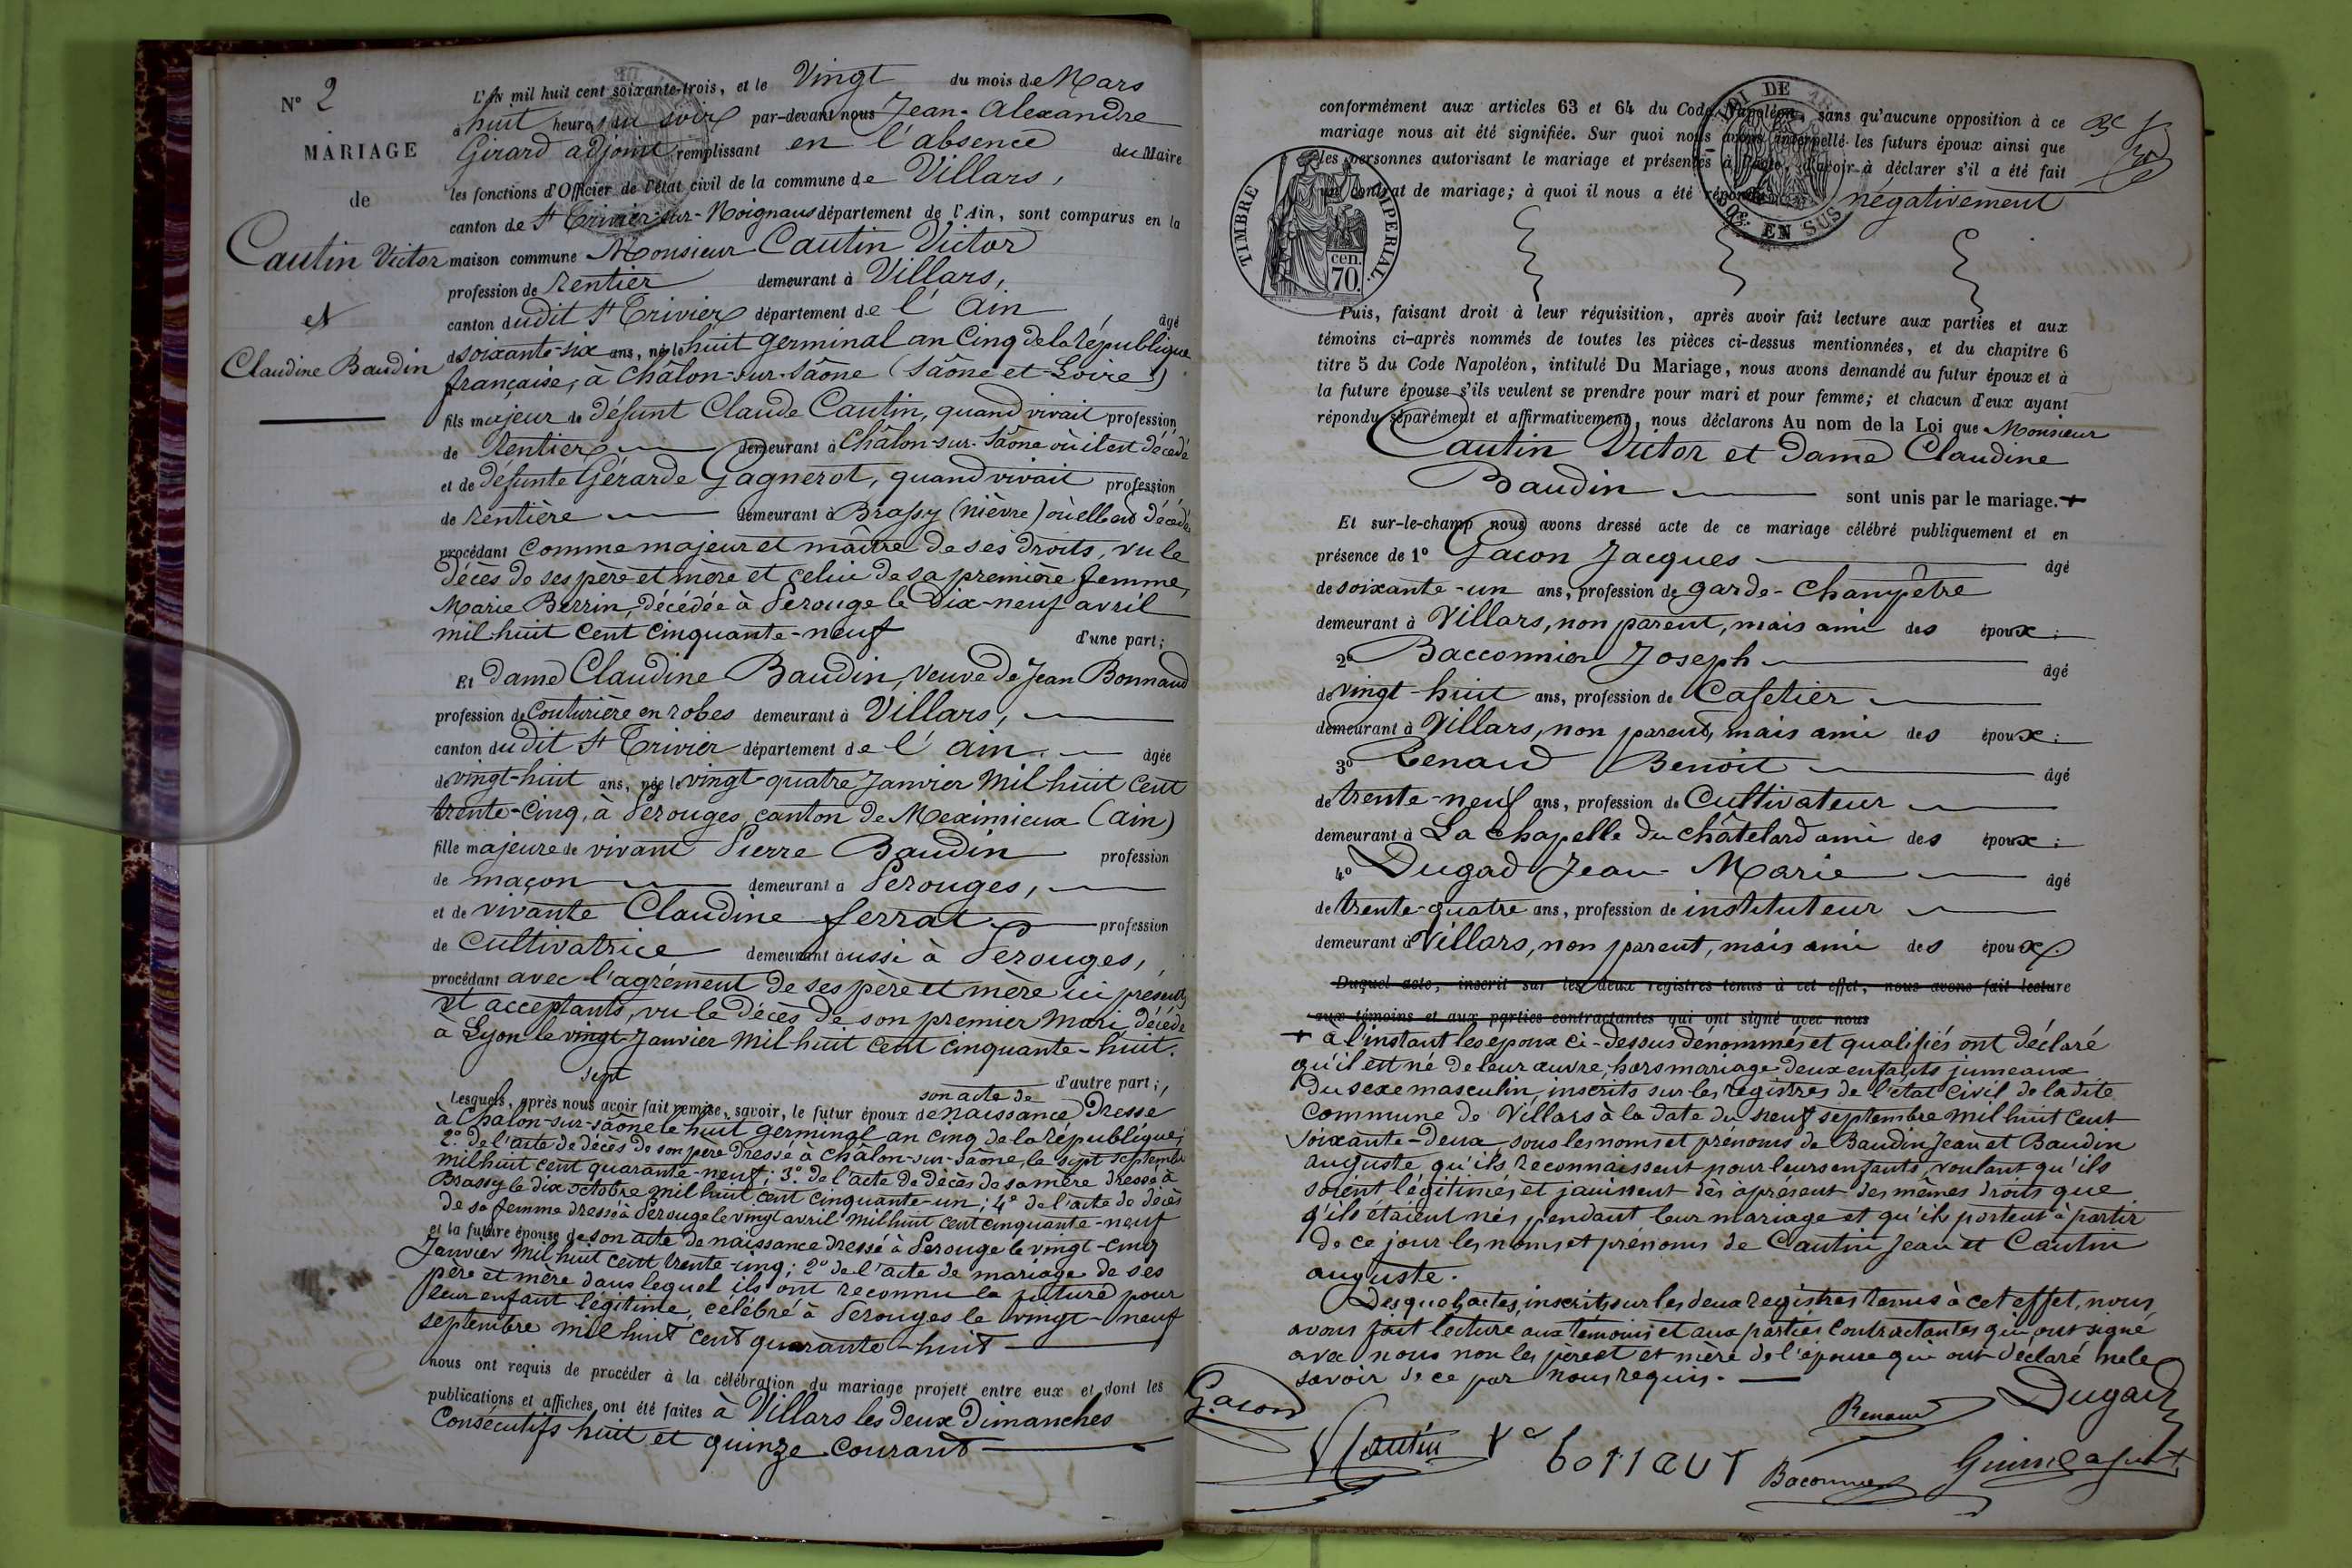 N° 2
MARIAGE
de
Cautin Victor
et
Claudine Baudin
L'An mil huit cent soixante-trois, et le Vingt du mois de Mars
à huit heures du soir par-devant nous Jean-Alexandre
Girard adjoint remplissant en l'absence du Maire
les fonctions d'Officier de l'état civil de la commune de Villars,
canton de St Trivier-sur-Moignans département de l'Ain, sont comparus en la
maison commune Monsieur Cautin Victor
profession de Rentier demeurant à Villars,
canton dudit St Trivier département de l'Ain, âgé
de soixante-six ans, né le huit germinal an Cinq de la République
française, à Châlon-sur-Sâone (Sâone et Loire)
fils majeur de défunt Claude Cautin, quand vivait profession
de Rentier demeurant à Châlon-sur-Sâone où il est décédé
et de défunte Gérarde Gagnerot, quand vivait profession
de rentière demeurant à Brassy (nièvre) où elle est décédée
procédant comme majeur et maître de ses droits, vu le
décès de ses père et mère et celui de sa première femme,
Marie Berrin, décédée à Perouge le dix-neuf avril
mil huit cent cinquante-neuf d'une part;
Et dame Claudine Baudin, veuve de Jean Bonnaud
profession de Couturière en robes demeurant à Villars,
canton dudit St Trivier département de l'ain âgée
de vingt-huit ans, née le vingt-quatre Janvier mil huit cent
trente-cinq, à Perouges, canton de Meximieux (ain)
fille majeure de vivant Pierre Baudin profession
de maçon demeurant à Perouges,
et de vivante Claudine ferrat profession
de Cultivatrice demeurant aussi à Perouges,
procédant avec l'agrément de ses père et mère ici présents
et acceptants, vu le décès de son premier mari, décédé
à Lyon le vingt Janvier mil huit cent cinquante-huit.
sept
d'autre part;
Lesquels, après nous avoir fait remise, savoir, le futur époux de son acte de naissance dressé
à Chalon-sur-Saône le huit germinal an cinq de la république;
2° de l'acte de décès de son père dressé à Chalon-sur-Sâone, le sept septembre
mil huit cent quarante-neuf; 3° de l'acte de décès de sa mère dressé à
Brassy le dix octobre mil huit cent cinquante-un; 4° de l'acte de décès
de sa femme dressé à Perouge le vingt avril mil huit cent cinquante-neuf
et la future épouse de son acte de naissance dressé à Perouge le vingt-cinq
Janvier mil huit cent trente-cinq; 2° de l'acte de mariage de ses
père et mère dans lequel ils ont reconnu la future pour
leur enfant légitime, célébré à Perouges le vingt-neuf
septembre mil huit cent quarante-huit
nous ont requis de procéder à la célébration du mariage projeté entre eux et dont les
publications et affiches ont été faites à Villars les deux Dimanches
Consécutifs huit et quinze courant
conformément aux articles 63 et 64 du Code Napoléon, sans qu'aucune opposition à ce
mariage nous ait été signifiée. Sur quoi nous avons interpellé les futurs époux ainsi que
les personnes autorisant le mariage et présentes à l'acte, d'avoir à déclarer s'il a été fait
un contrat de mariage; à quoi il nous a été répondu négativement
TIMBRE IMPERIAL.
cen. 70.
EN SUS
Puis, faisant droit à leur réquisition, après avoir fait lecture aux parties et aux
témoins ci-après nommés de toutes les pièces ci-dessus mentionnées, et du chapitre 6
titre 5 du Code Napoléon, intitulé Du Mariage, nous avons demandé au futur époux et à
la future épouse s'ils veulent se prendre pour mari et pour femme; et chacun d'eux ayant
répondu séparément et affirmativement, nous déclarons Au nom de la Loi que Monsieur
Cautin Victor et dame Claudine
Baudin sont unis par le mariage. +
Et sur-le-champ nous avons dressé acte de ce mariage célébré publiquement et en
présence de 1° Gacon Jacques âgé
de soixante-un ans, profession de garde-champêtre
demeurant à Villars, non parent, mais ami des époux;
2° Bacconnier Joseph âgé
de vingt-huit ans, profession de Cafetier
demeurant à Villars, non parent, mais ami des époux;
3° Renaud Benoit âgé
de trente-neuf ans, profession de Cultivateur
demeurant à La Chapelle du Châtelard ami des époux;
4° Dugad Jean-Marie âgé
de trente-quatre ans, profession de instituteur
demeurant à Villars, non parent, mais ami des époux
Duquel acte, inscrit sur les deux registres tenus à cet effet, nous avons fait lecture
aux témoins et aux parties contractantes qui ont signé avec nous
+ à l'instant les époux ci-dessus dénommés et qualifiés ont déclaré
qu'il est né de leur œuvre, hors mariage deux enfants jumeaux
du sexe masculin, inscrits sur les registres de l'état civil de ladite
Commune de Villars à la date du neuf septembre mil huit cent
soixante-deux, sous les noms et prénoms de Baudin Jean et Baudin
auguste, qu'ils reconnaissent pour leurs enfants, voulant qu'ils
soient légitimés et jouissent dès àprésent des mêmes droits que
s'ils étaient nés pendant leur mariage et qu'ils portent à partir
de ce jour les noms et prénoms de Cautin Jean et Cautin
auguste.
Desquels actes, inscrits sur les deux registres tenus à cet effet, nous
avons fait lecture aux témoins et aux parties contractantes qui ont signé
avec nous non les père et mère de l'épouse qui ont déclaré ne le
savoir de ce par nous requis.
Gacon
V Cautin
Ve bonaut
Renaud
Baconnier
Dugad